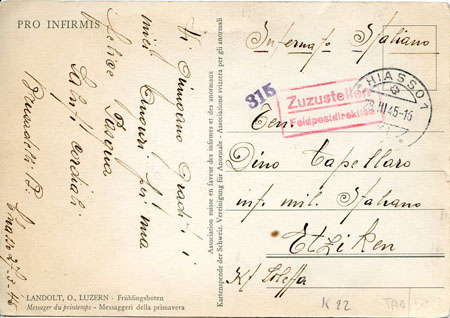 PRO INFIRMIS
Vi giungano graditi i
miei auguri per una
felice Pasqua
Saluti cordiali
LANDOLT, O., LUZERN - Frühlingsboten
Messager du printemps - Messaggeri della primavera
Association suisse en faveur des infirmes et des anormaux
Associazione svizzera per gli anormali
Kartenspende der Schweiz. Vereinigung für Anormale
Internato Italiano
315
Zuzustellen
Feldpostdirektion
CHIASSO 1
28.III.45-16
Ten.
Dino Capellaro
inf. mil. Italiano
Etziken
Kt Soletta
K 22